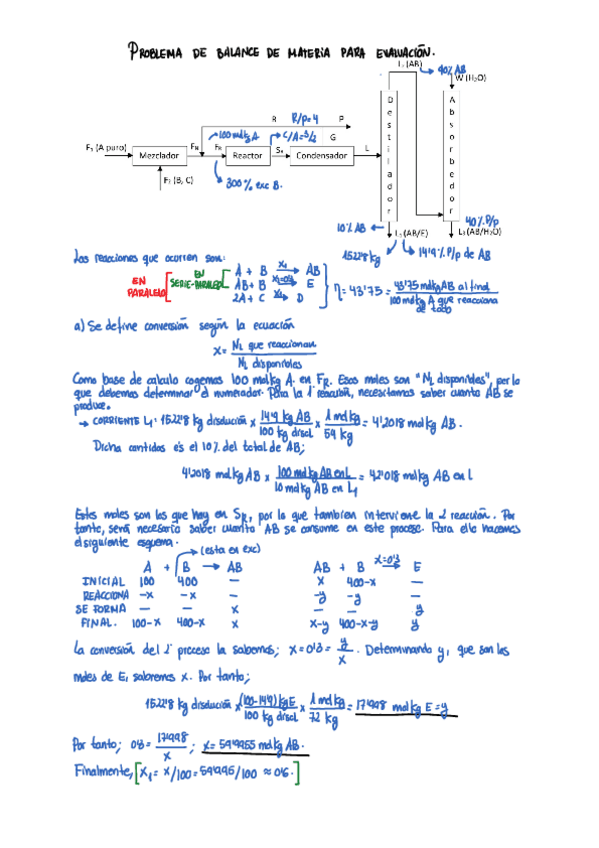 PROBLEMA DE BALANCE DE MATERIA PARA EVALUACIÓN.
L₂ (AB)
40% AB
W (H₂O)
R
R/P=4
P
100 molkg A
C/A=3/2
G
F₁ (A puro)
Mezclador
Reactor
Condensador
L
Destilador
Absorbedor
F₂ (B, C)
300% exc B.
10% AB
L₁ (AB/E)
40% P/p
L₃ (AB/H₂O)
152'2'8 kg
14'9% P/p de AB
Las reacciones que ocurren son:
EN PARALELO
EN SERIE-PARALELO
A + B → AB
AB + B → E
2A + C → D
η = 43'75 = 43'75 molkg AB al final
100 molkg A que reacciona de todo
a) Se define conversión según la ecuación
X = Nᵢ que reaccionan
Nᵢ disponibles
Como base de calculo cogemos 100 molkg A. en FR. Esos moles son "Nᵢ disponibles", por lo
que debemos determinar el numerador. Para la 1ª reacción, necesitamos saber cuanto AB se
produce.
→ CORRIENTE L₁: 152'2'8 kg disolución × 14'9 kg AB / 100 kg disol × 1 molkg / 54 kg = 4'2018 molkg AB.
Dicha cantidad es el 10% del total de AB;
4'2018 molkg AB × 100 molkg AB en L / 10 molkg AB en L₁ = 42'018 molkg AB en L
Estos moles son los que hay en SR, por lo que tambien interviene la 2 reacción. Por
tanto, será necesario saber cuanto AB se consume en este proceso. Para ello hacemos
el siguiente esquema.
(esta en exc)
A + B → AB
AB + B X=0'3 → E
INICIAL 100 400 — X 400-X —
REACCIONA -X -X — -Y -Y —
SE FORMA — — X — — Y
FINAL. 100-X 400-X X X-Y 400-X-Y Y
La conversión del 2º proceso la sabemos; X=0'3= Y/X. Determinando y, que son los
moles de E, sabremos x. Por tanto;
152'2'8 kg disolución × (100-14'9) kg E / 100 kg disol × 1 molkg / 72 kg = 17'998 molkg E = y
Por tanto; 0'3 = 17'998 / X ; X = 59'9955 molkg AB.
Finalmente, [X₁ = X/100 = 59'995/100 ≈ 0'6.]